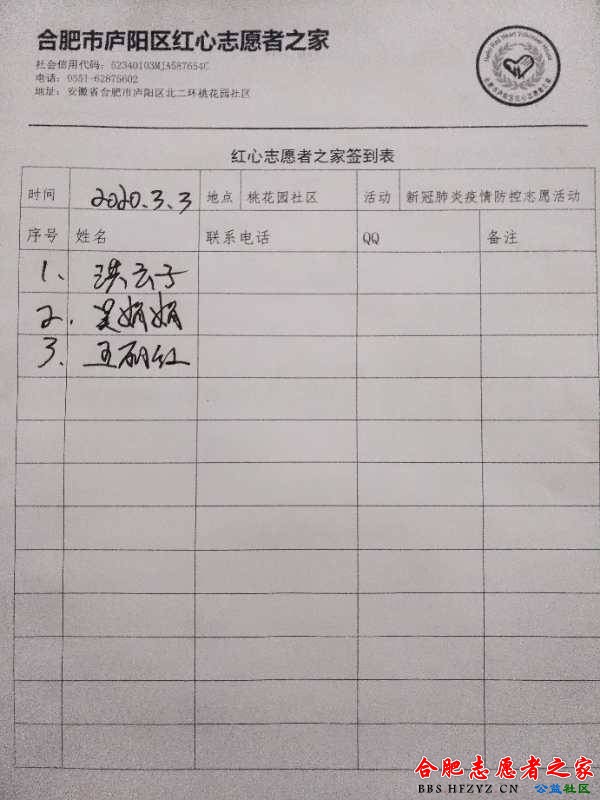 合肥市庐阳区红心志愿者之家
社会信用代码：52340103MJA587654C
电话：0551-62875602
地址：安徽省合肥市庐阳区北二环桃花园社区
红心志愿者之家签到表
时间 2020.3.3 地点 桃花园社区 活动 新冠肺炎疫情防控志愿活动
序号 姓名 联系电话 QQ 备注
1、 洪云子
2. 吴娟娟
3、 王丽红
合肥志愿者之家
BBS.HFZYZ.CN 公益社区